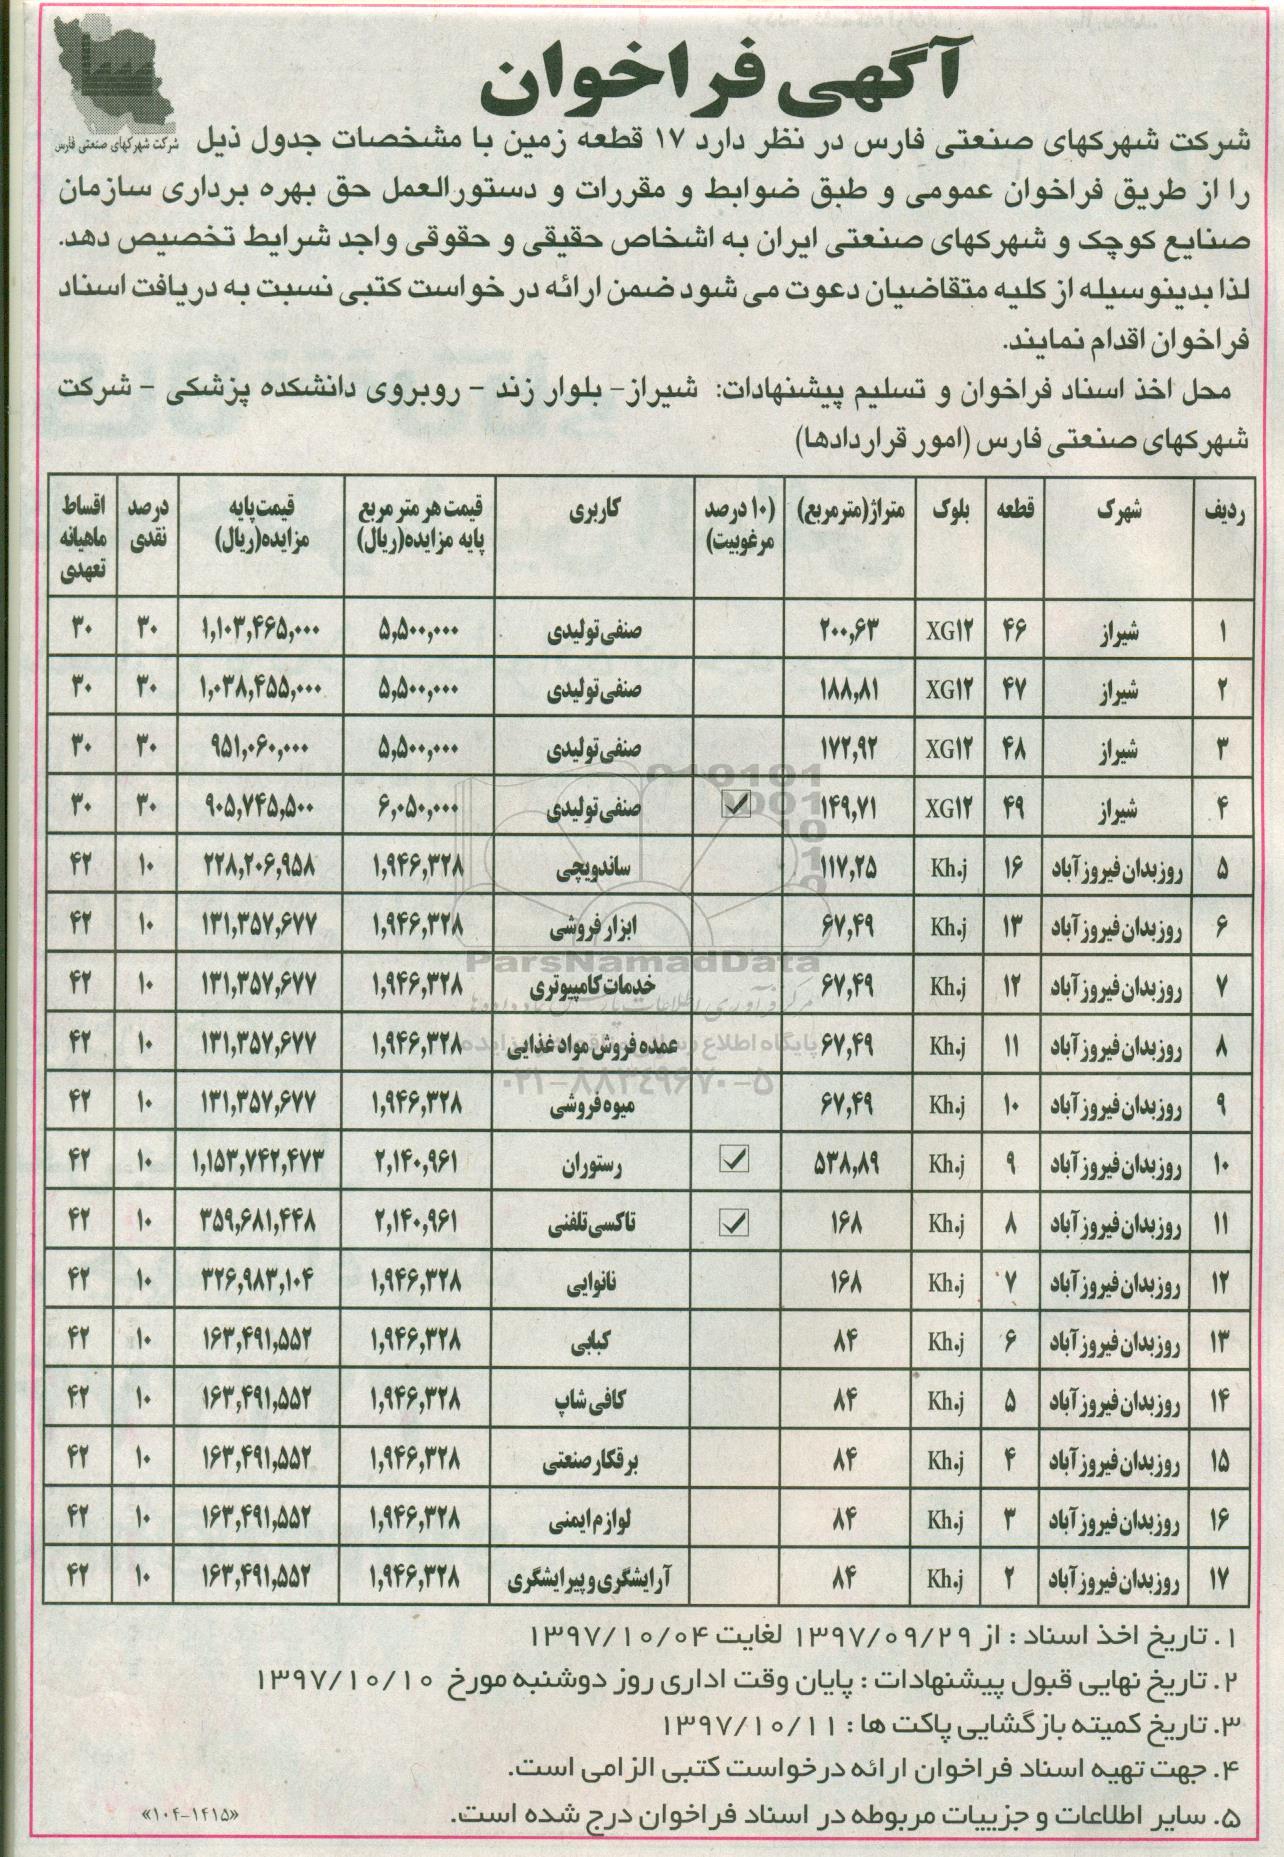 آگهی فراخوان
شرکت شهرکهای صنعتی فارس
شرکت شهرکهای صنعتی فارس در نظر دارد ۱۷ قطعه زمین با مشخصات جدول ذیل
را از طریق فراخوان عمومی و طبق ضوابط و مقررات و دستورالعمل حق بهره برداری سازمان
صنایع کوچک و شهرکهای صنعتی ایران به اشخاص حقیقی و حقوقی واجد شرایط تخصیص دهد.
لذا بدینوسیله از کلیه متقاضیان دعوت می شود ضمن ارائه درخواست کتبی نسبت به دریافت اسناد
فراخوان اقدام نمایند.
محل اخذ اسناد فراخوان و تسلیم پیشنهادات: شیراز- بلوار زند - روبروی دانشکده پزشکی - شرکت
شهرکهای صنعتی فارس (امور قراردادها)
ردیف شهرک قطعه بلوک متراژ(مترمربع) (۱۰ درصد مرغوبیت) کاربری قیمت هر متر مربع پایه مزایده(ریال) قیمت پایه مزایده(ریال) درصد نقدی اقساط ماهیانه تعهدی
۱ شیراز ۴۶ XG۱۲ ۲۰۰,۶۳ صنفی تولیدی ۵,۵۰۰,۰۰۰ ۱,۱۰۳,۴۶۵,۰۰۰ ۳۰ ۳۰
۲ شیراز ۴۷ XG۱۲ ۱۸۸,۸۱ صنفی تولیدی ۵,۵۰۰,۰۰۰ ۱,۰۳۸,۴۵۵,۰۰۰ ۳۰ ۳۰
۳ شیراز ۴۸ XG۱۲ ۱۷۲,۹۲ صنفی تولیدی ۵,۵۰۰,۰۰۰ ۹۵۱,۰۶۰,۰۰۰ ۳۰ ۳۰
۴ شیراز ۴۹ XG۱۲ ۱۴۹,۷۱ ✓ صنفی تولیدی ۶,۰۵۰,۰۰۰ ۹۰۵,۷۴۵,۵۰۰ ۳۰ ۳۰
۵ روزبدان فیروزآباد ۱۶ Kh.j ۱۱۷,۲۵ ساندویچی ۱,۹۴۶,۳۲۸ ۲۲۸,۲۰۶,۹۵۸ ۱۰ ۴۲
۶ روزبدان فیروزآباد ۱۳ Kh.j ۶۷,۴۹ ابزار فروشی ۱,۹۴۶,۳۲۸ ۱۳۱,۳۵۷,۶۷۷ ۱۰ ۴۲
۷ روزبدان فیروزآباد ۱۲ Kh.j ۶۷,۴۹ خدمات کامپیوتری ۱,۹۴۶,۳۲۸ ۱۳۱,۳۵۷,۶۷۷ ۱۰ ۴۲
۸ روزبدان فیروزآباد ۱۱ Kh.j ۶۷,۴۹ عمده فروش مواد غذایی ۱,۹۴۶,۳۲۸ ۱۳۱,۳۵۷,۶۷۷ ۱۰ ۴۲
۹ روزبدان فیروزآباد ۱۰ Kh.j ۶۷,۴۹ میوه فروشی ۱,۹۴۶,۳۲۸ ۱۳۱,۳۵۷,۶۷۷ ۱۰ ۴۲
۱۰ روزبدان فیروزآباد ۹ Kh.j ۵۳۸,۸۹ ✓ رستوران ۲,۱۴۰,۹۶۱ ۱,۱۵۳,۷۴۲,۴۷۳ ۱۰ ۴۲
۱۱ روزبدان فیروزآباد ۸ Kh.j ۱۶۸ ✓ تاکسی تلفنی ۲,۱۴۰,۹۶۱ ۳۵۹,۶۸۱,۴۴۸ ۱۰ ۴۲
۱۲ روزبدان فیروزآباد ۷ Kh.j ۱۶۸ نانوایی ۱,۹۴۶,۳۲۸ ۳۲۶,۹۸۳,۱۰۴ ۱۰ ۴۲
۱۳ روزبدان فیروزآباد ۶ Kh.j ۸۴ کبابی ۱,۹۴۶,۳۲۸ ۱۶۳,۴۹۱,۵۵۲ ۱۰ ۴۲
۱۴ روزبدان فیروزآباد ۵ Kh.j ۸۴ کافی شاپ ۱,۹۴۶,۳۲۸ ۱۶۳,۴۹۱,۵۵۲ ۱۰ ۴۲
۱۵ روزبدان فیروزآباد ۴ Kh.j ۸۴ برقکار صنعتی ۱,۹۴۶,۳۲۸ ۱۶۳,۴۹۱,۵۵۲ ۱۰ ۴۲
۱۶ روزبدان فیروزآباد ۳ Kh.j ۸۴ لوازم ایمنی ۱,۹۴۶,۳۲۸ ۱۶۳,۴۹۱,۵۵۲ ۱۰ ۴۲
۱۷ روزبدان فیروزآباد ۲ Kh.j ۸۴ آرایشگری و پیرایشگری ۱,۹۴۶,۳۲۸ ۱۶۳,۴۹۱,۵۵۲ ۱۰ ۴۲
ParsNamadData
۰۲۱-۸۸۳۴۹۶۷۰-۵
۱. تاریخ اخذ اسناد : از ۱۳۹۷/۰۹/۲۹ لغایت ۱۳۹۷/۱۰/۰۴
۲. تاریخ نهایی قبول پیشنهادات : پایان وقت اداری روز دوشنبه مورخ ۱۳۹۷/۱۰/۱۰
۳. تاریخ کمیته بازگشایی پاکت ها : ۱۳۹۷/۱۰/۱۱
۴. جهت تهیه اسناد فراخوان ارائه درخواست کتبی الزامی است.
۵. سایر اطلاعات و جزییات مربوطه در اسناد فراخوان درج شده است.
«۱۰۴-۱۴۱۵»